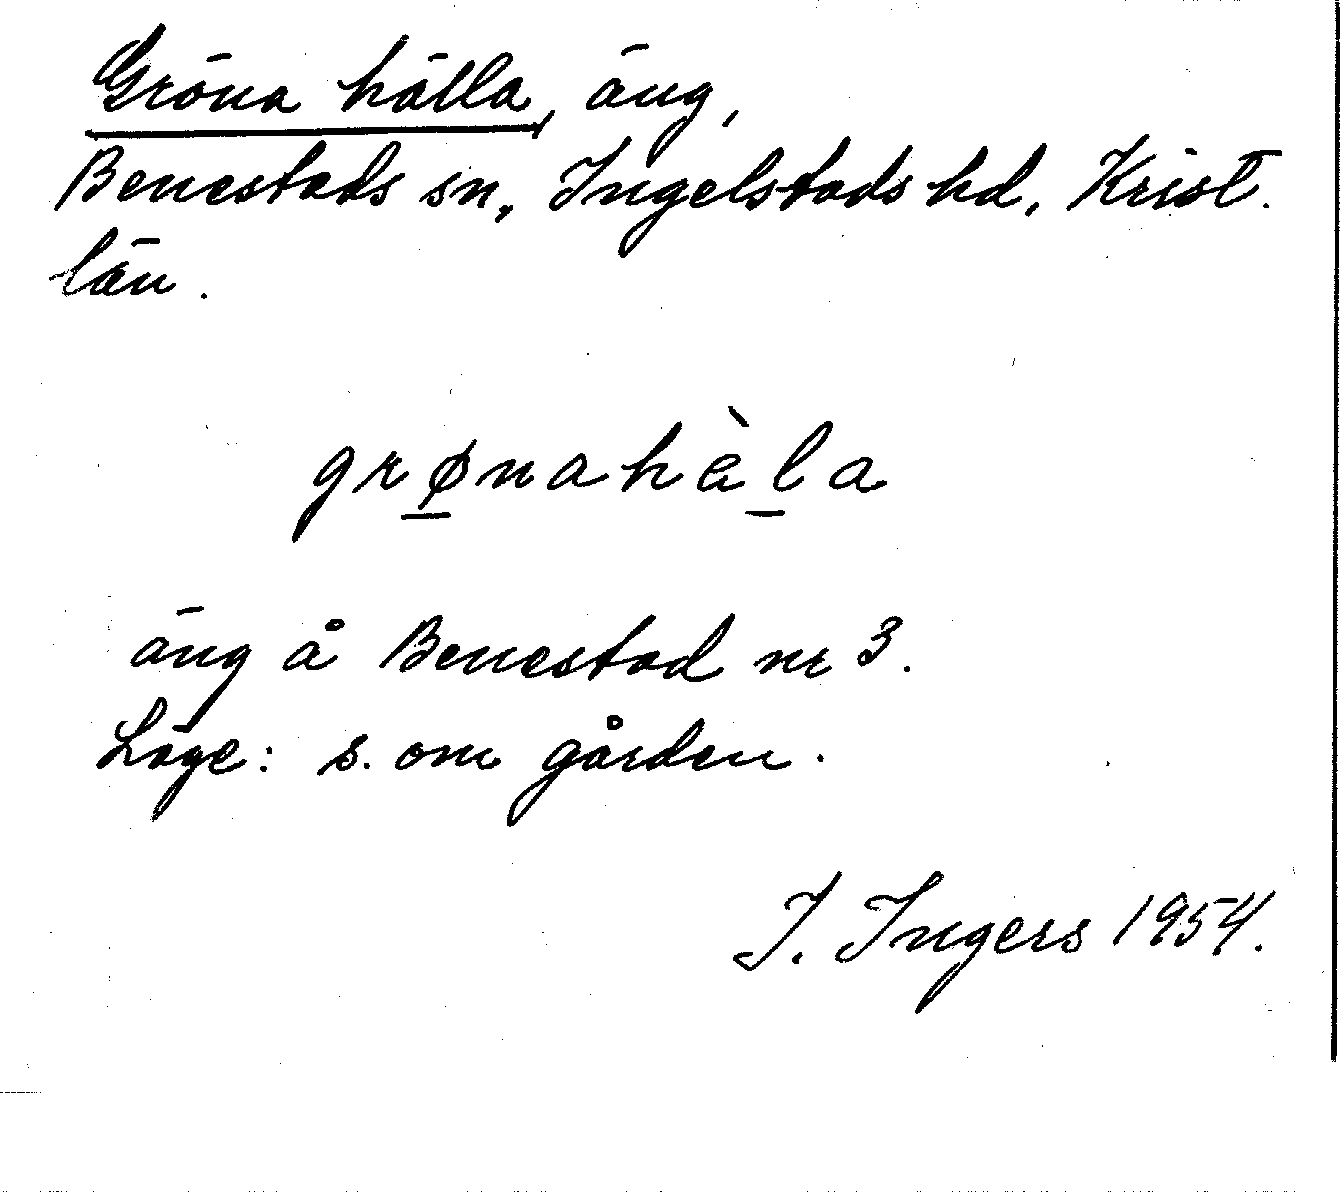 Gröna hälla, äng,
Benestads sn, Ingelstads hd, Krist.
län.
grø̱nahὲḻa
äng å Benestad nr 3.
Läge: s. om gården.
I. Ingers 1954.